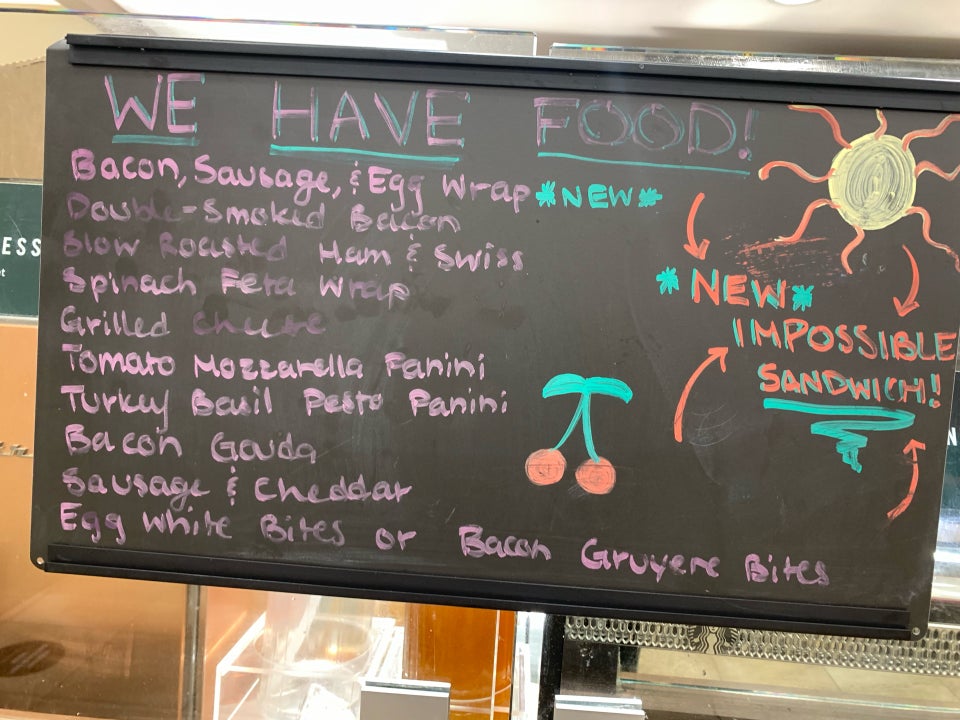 WE HAVE FOOD!
Bacon, Sausage, & Egg Wrap *NEW*
Double-Smoked Bacon
Slow Roasted Ham & Swiss
Spinach Feta Wrap
Grilled Cheese
Tomato Mozzarella Panini
Turkey Basil Pesto Panini
Bacon Gouda
Sausage & Cheddar
Egg White Bites or Bacon Gruyere Bites
*NEW*
IMPOSSIBLE
SANDWICH!
ESS